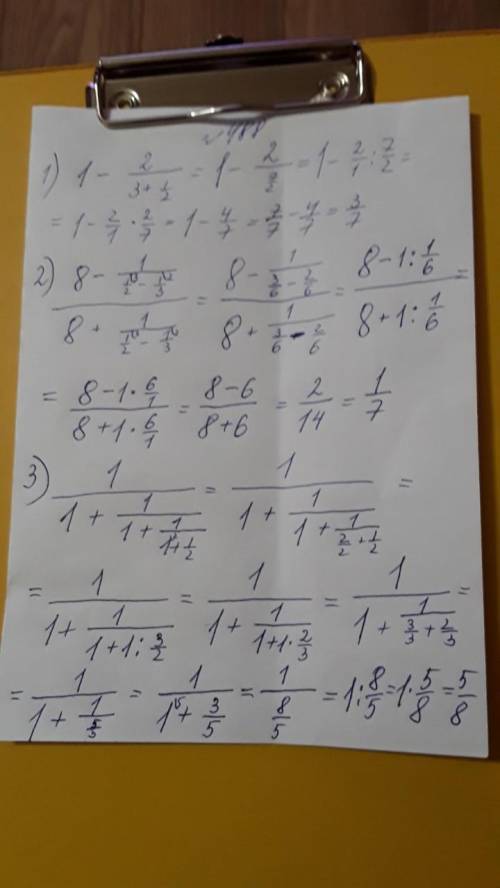 №488
1) 1 - 2/(3+1/2) = 1 - 2/(7/2) = 1 - 2/1 : 7/2 =
= 1 - 2/1 · 2/7 = 1 - 4/7 = 7/7 - 4/7 = 3/7
2) (8 - 1/(1/2 - 1/3))/(8 + 1/(1/2 - 1/3)) = (8 - 1/(3/6 - 2/6))/(8 + 1/(3/6 - 2/6)) = (8 - 1 : 1/6)/(8 + 1 : 1/6) =
= (8 - 1 · 6/1)/(8 + 1 · 6/1) = (8 - 6)/(8 + 6) = 2/14 = 1/7
3) 1/(1 + 1/(1 + 1/(1 + 1/2))) = 1/(1 + 1/(1 + 1/(2/2 + 1/2))) =
= 1/(1 + 1/(1 + 1 : 3/2)) = 1/(1 + 1/(1 + 1 · 2/3)) = 1/(1 + 1/(3/3 + 2/3)) =
= 1/(1 + 1/(5/3)) = 1/(1 + 3/5) = 1/(8/5) = 1 : 8/5 = 1 · 5/8 = 5/8